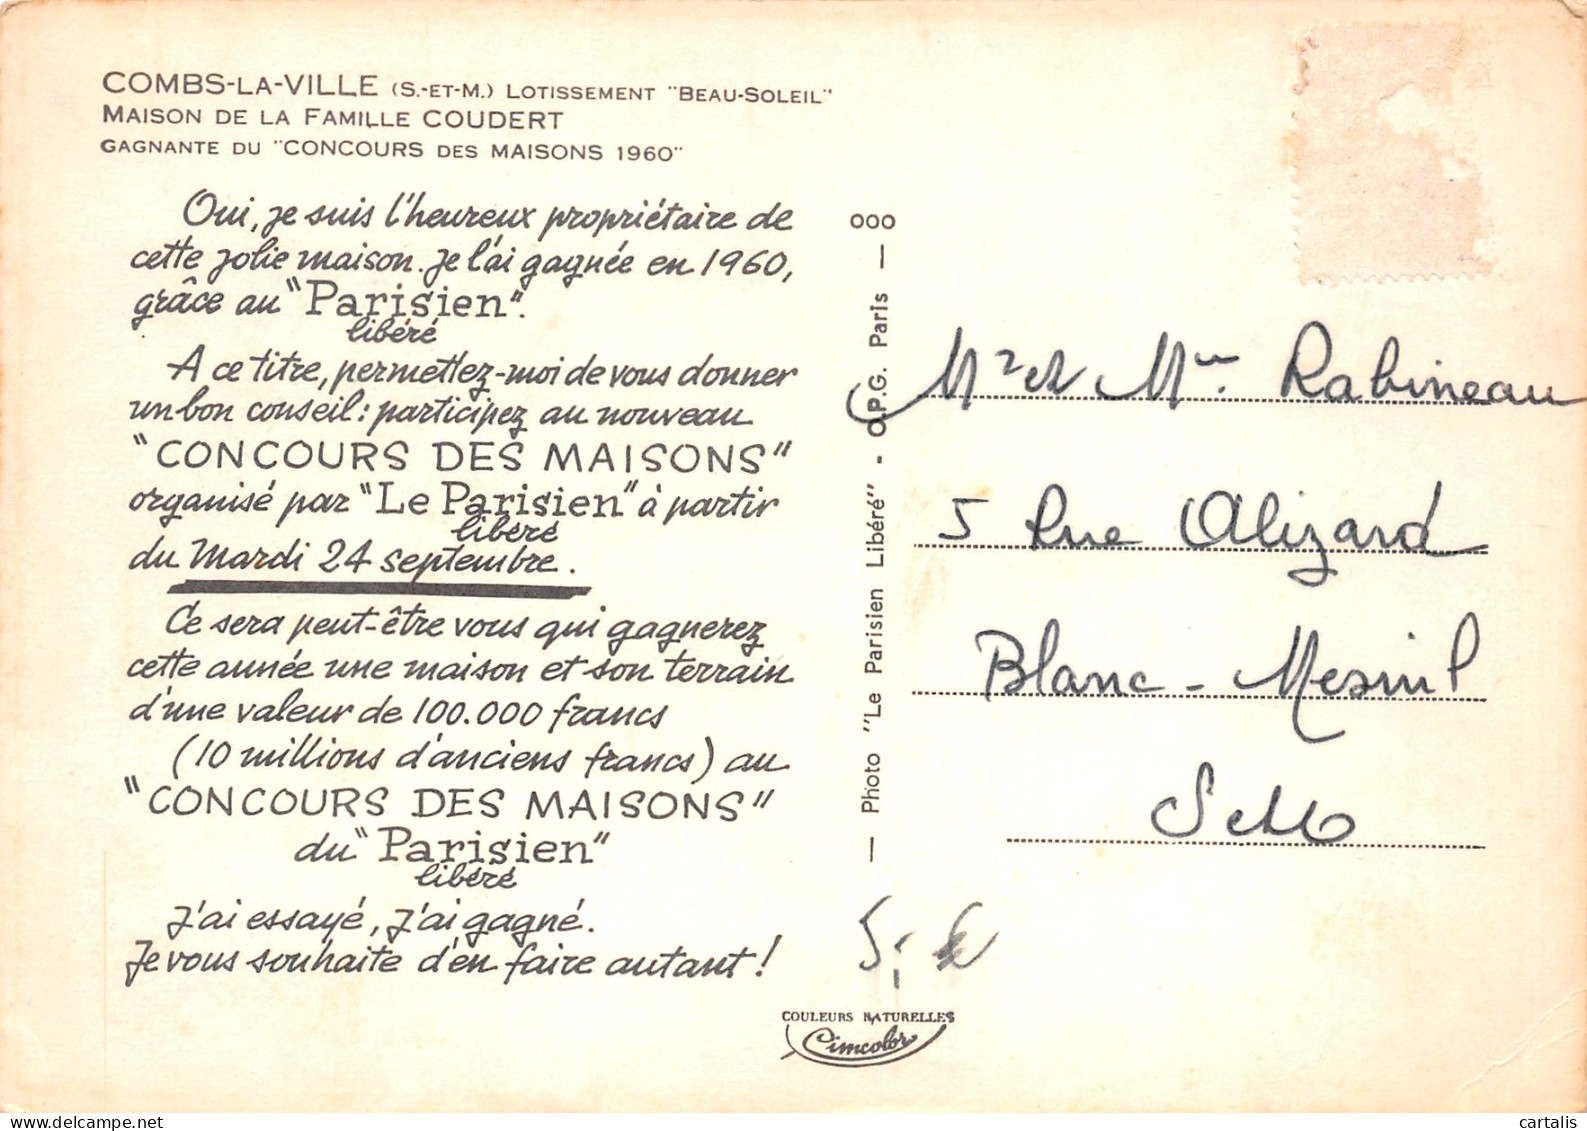 COMBS-LA-VILLE (S.-ET-M.) LOTISSEMENT "BEAU-SOLEIL"
MAISON DE LA FAMILLE COUDERT
GAGNANTE DU "CONCOURS DES MAISONS 1960"
Oui, je suis l'heureux propriétaire de
cette jolie maison. Je l'ai gagnée en 1960,
grâce au "Parisien".
libéré
A ce titre, permettez-moi de vous donner
un bon conseil : participez au nouveau
"CONCOURS DES MAISONS"
organisé par "Le Parisien" à partir
libéré
du Mardi 24 septembre.
Ce sera peut-être vous qui gagnerez
cette année une maison et son terrain
d'une valeur de 100.000 francs
(10 millions d'anciens francs) au
"CONCOURS DES MAISONS"
du "Parisien"
libéré
J'ai essayé, j'ai gagné.
Je vous souhaite d'en faire autant !
000
— Photo "Le Parisien Libéré" - O.P.G. Paris —
Mr et Mme Rabineau
5 Rue Alizard
Blanc-Mesnil
S et O
COULEURS NATURELLES
Cimcolor
cartalis